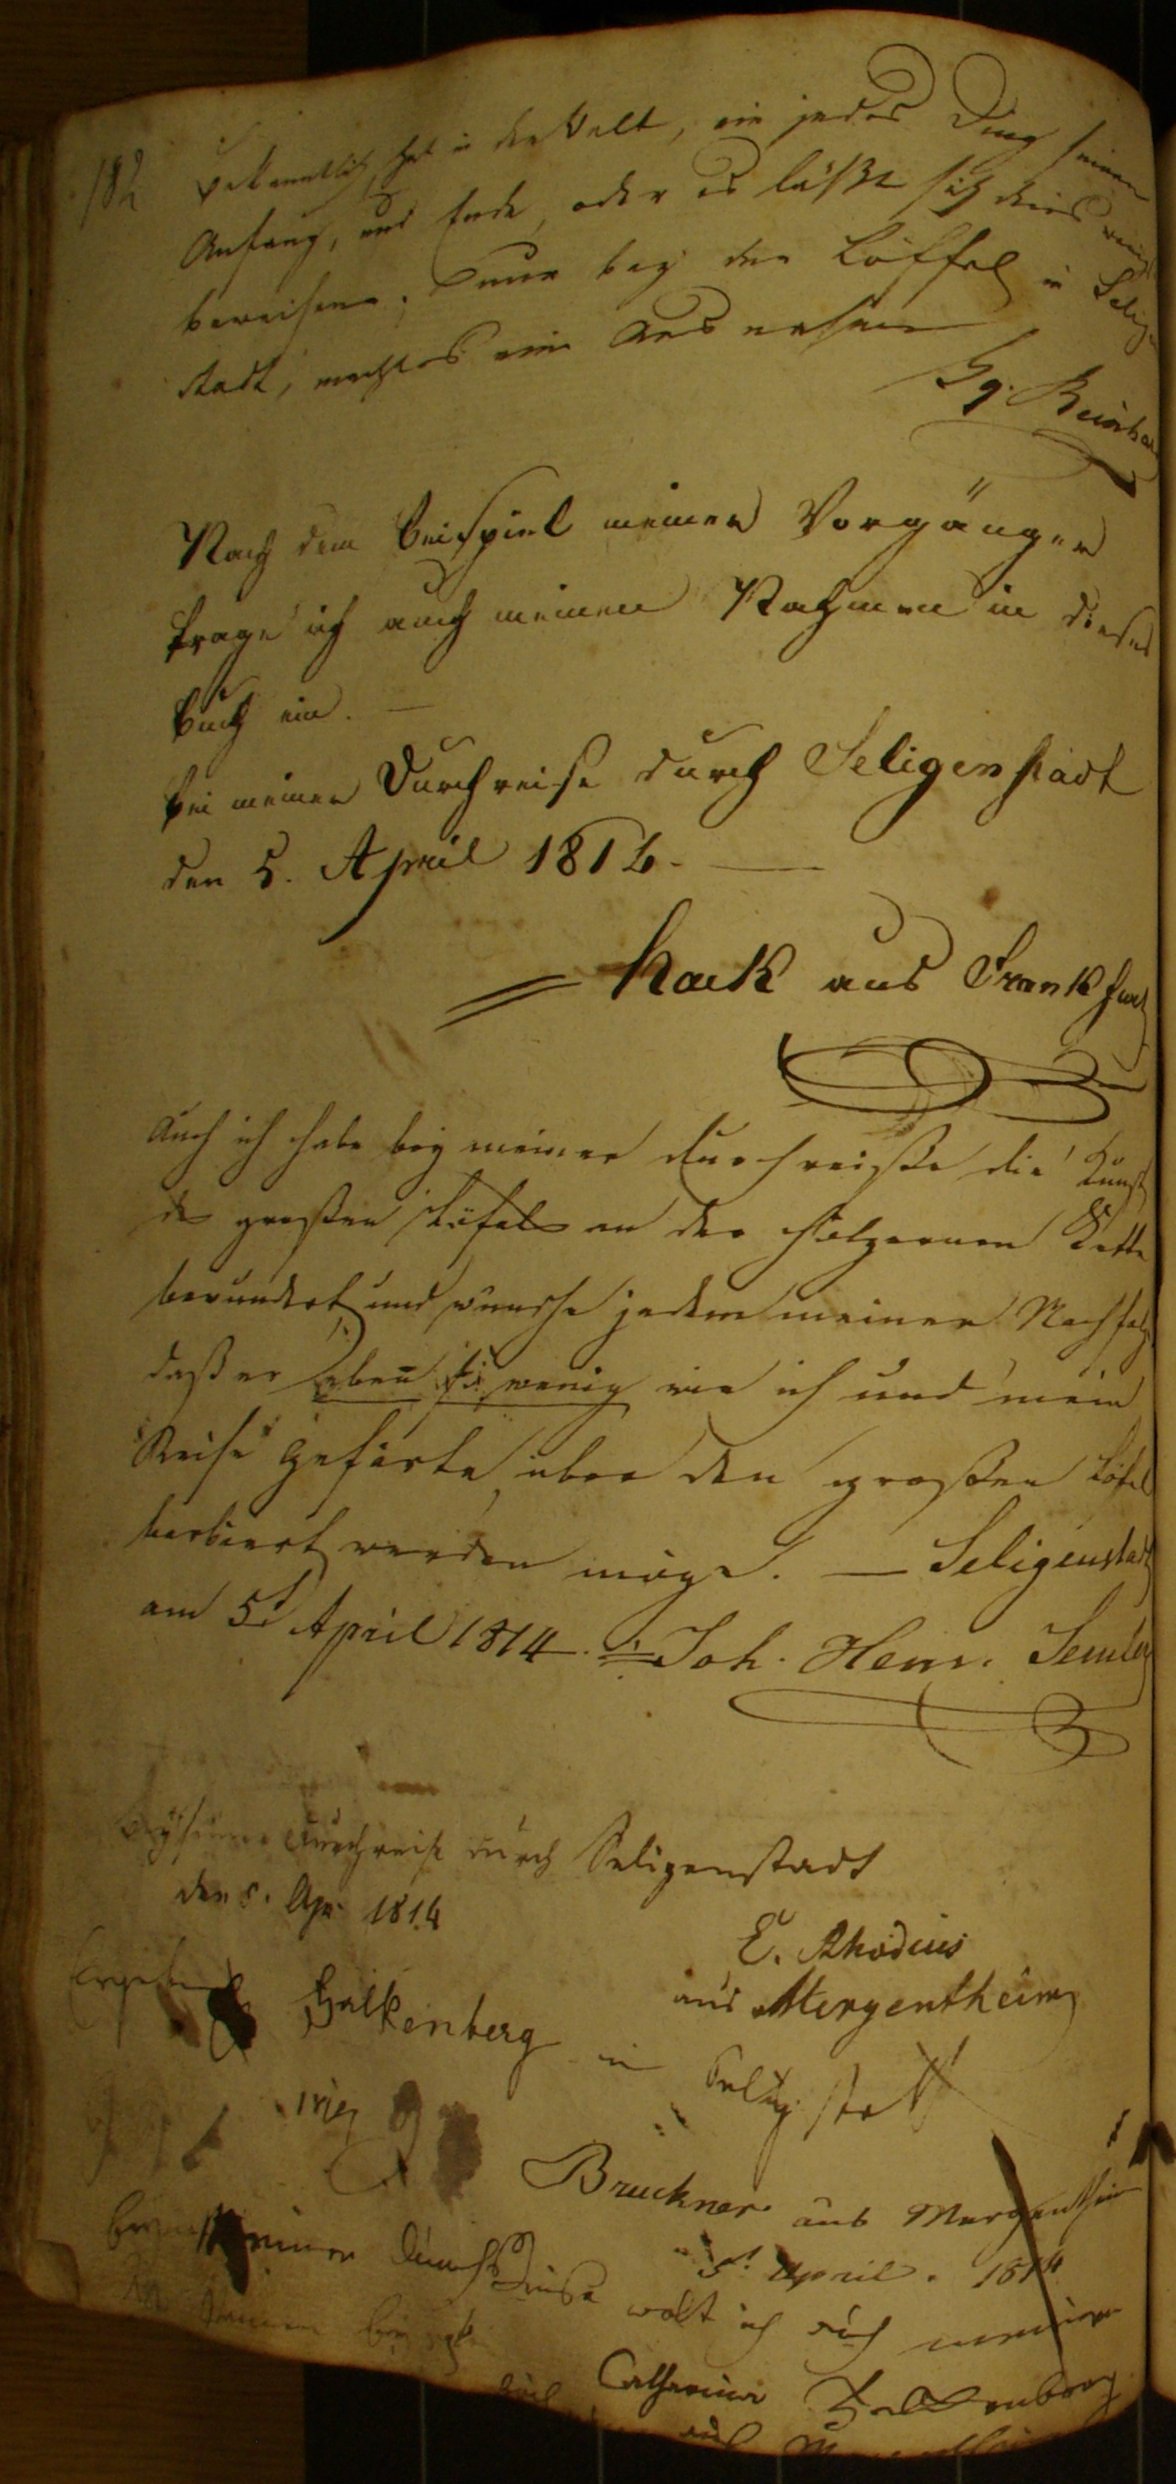 182
Bekanntlich hat in der Welt, ein jedes Ding seinen
Anfang, und Ende, oder es läßt sich dies
beweisen. Nur bey den Löffel in Selig
stadt, macht es eine Ausnahme
Gg. Reinha
Nach dem Beispiel meiner Vorgänger
trage ich auch meinen Nahmen in dieses
Buch ein. —
Bei meiner Durchreise durch Seligenstadt
den 5. April 1814. —
Hack aus Frankfurt
Auch ich habe bey meiner Durchreiße die Kunst
des großen Löfels an der hölzernen Kette
bewundert und wünsche jedem meiner Nachfolg
daß er eben so wenig wie ich und mein
Reise Gefärte, über den großen Löfel
barbiert werden möge. — Seligenstadt
am 5t April 1814. Joh. Henr. Semler
Bey seiner Durchreise durch Seligenstadt
den 5. Apr. 1814
E. Rhodius
aus Mergentheim
Falkenberg in
Bruckner aus Mergentheim
5t April. 1814
meiner Durchreise wolt ich auch meinen
Catharina Falkenberg
aus